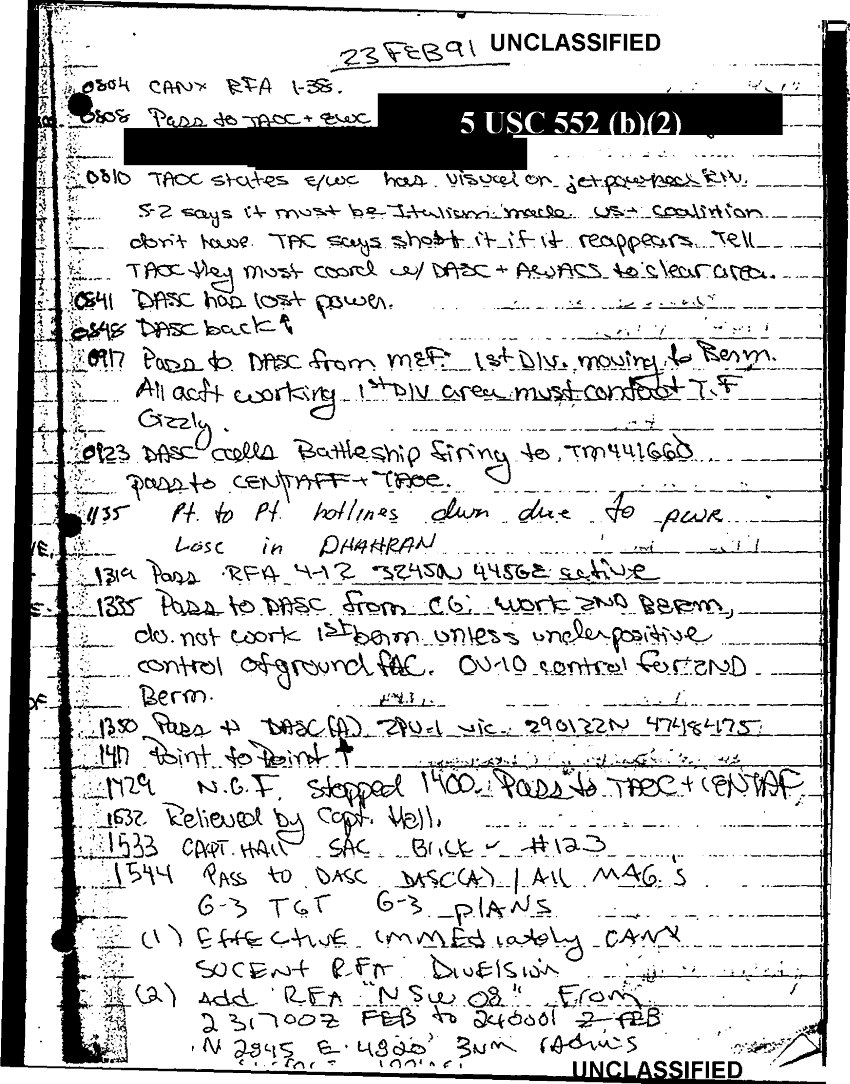 23 FEB 91 UNCLASSIFIED
0804 CANX RFA 1-38.
0808 Pass to TAOC + EWC
5 USC 552 (b)(2)
0810 TAOC states E/WC has visual on jet powered
S-2 says it must be Italian made US + coalition
don't have. TAC says shoot it if it reappears. Tell
TAOC they must coord w/ DASC + AWACS to clear area.
0841 DASC has lost power.
0848 DASC back ↑
0917 Pass to DASC from MEF: 1st DIV. moving to Berm.
All acft working 1st DIV area must contact T.F
Gizzly.
0923 DASC calls Battleship firing to TM441660
pass to CENTAFF + TAOC.
1135 Pt. to Pt. hotlines down due to pwr
Lose in DHAHRAN
1319 Pass RFA 4-12 3245N 4456E active
1335 Pass to DASC from CG: work 2ND BERM,
do not work 1st berm unless under positive
control of ground FAC. OV-10 control for 2ND
Berm.
1350 Pass to DASC(A) ZPU-1 vic. 290132N 4748475
1417 Point to Point ↑
1429 N.G.F. stopped 1400. Pass to TAOC + CENTAF
1532 Relieved by Capt. Hall.
1533 CAPT. HAll SAC Brick ✓ #123
1544 PASS to DASC DASC(A) / All MAG's
G-3 TGT G-3 PlANS
(1) EFFECtIVE IMMEdiately CANX
SOCENT RFA DIVEISION
(2) Add RFA "NSW 08" From
231700Z FEB to 240001 Z FEB
N 2845 E 4820 3NM RAdius
UNCLASSIFIED